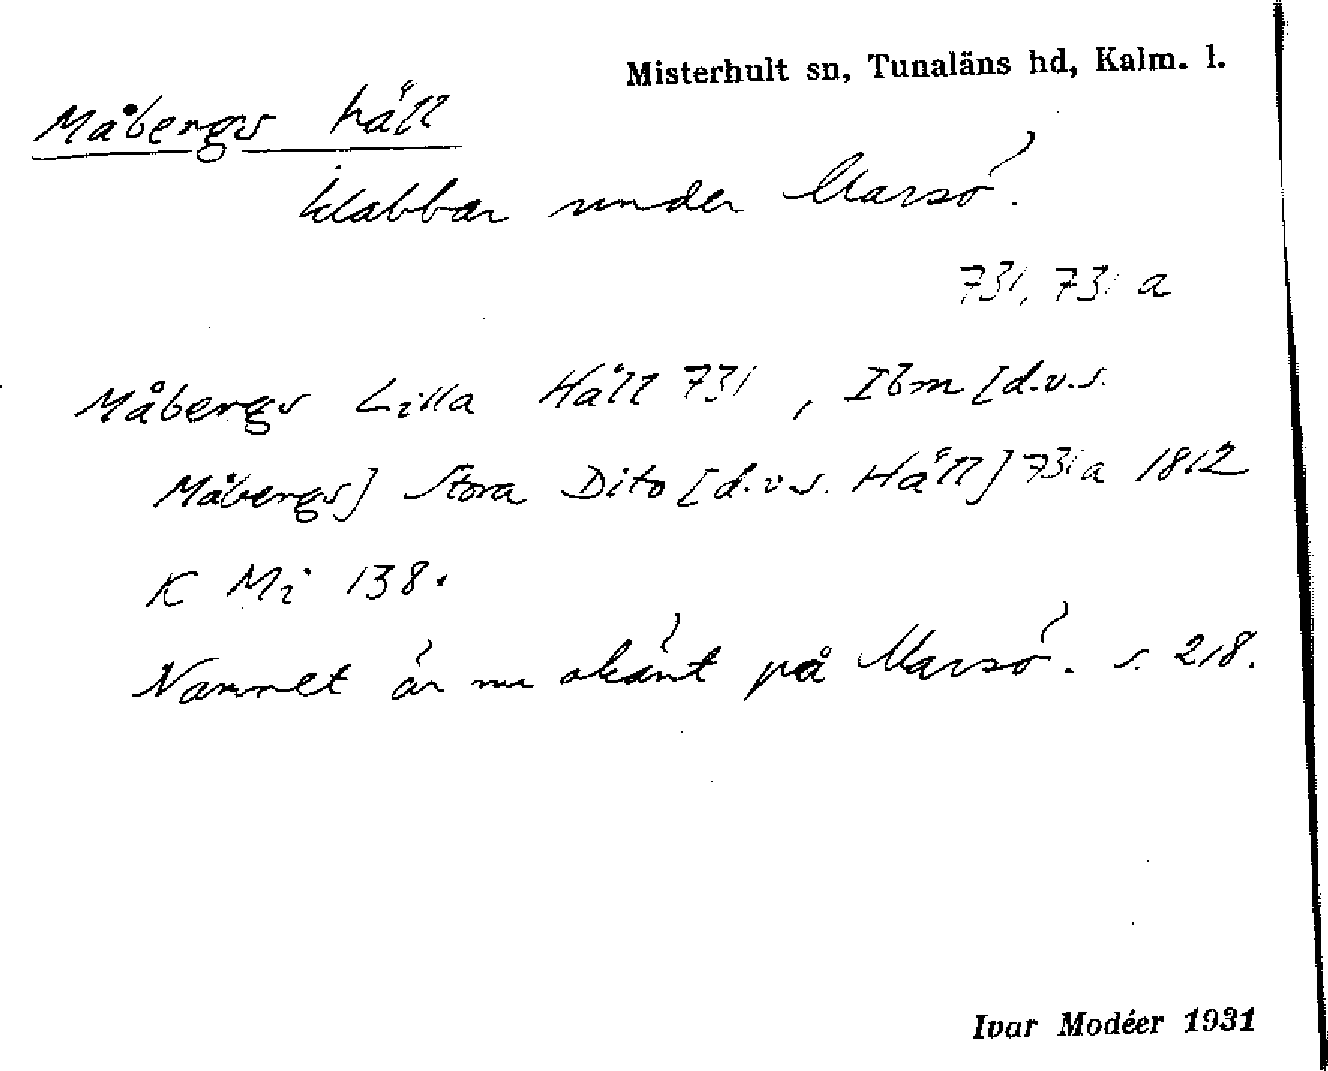 Misterhult sn, Tunaläns hd, Kalm. l.
Måbergs häll
klabbar under Marsö.
731, 731 a
Måbergs Lilla Häll 731, Ibm [d.v.s.
Måbergs] Stora Dito [d.v.s. Häll] 731a 1812
K Mi 138.
Namnet är nu okänt på Marsö. s. 218.
Ivar Modéer 1931